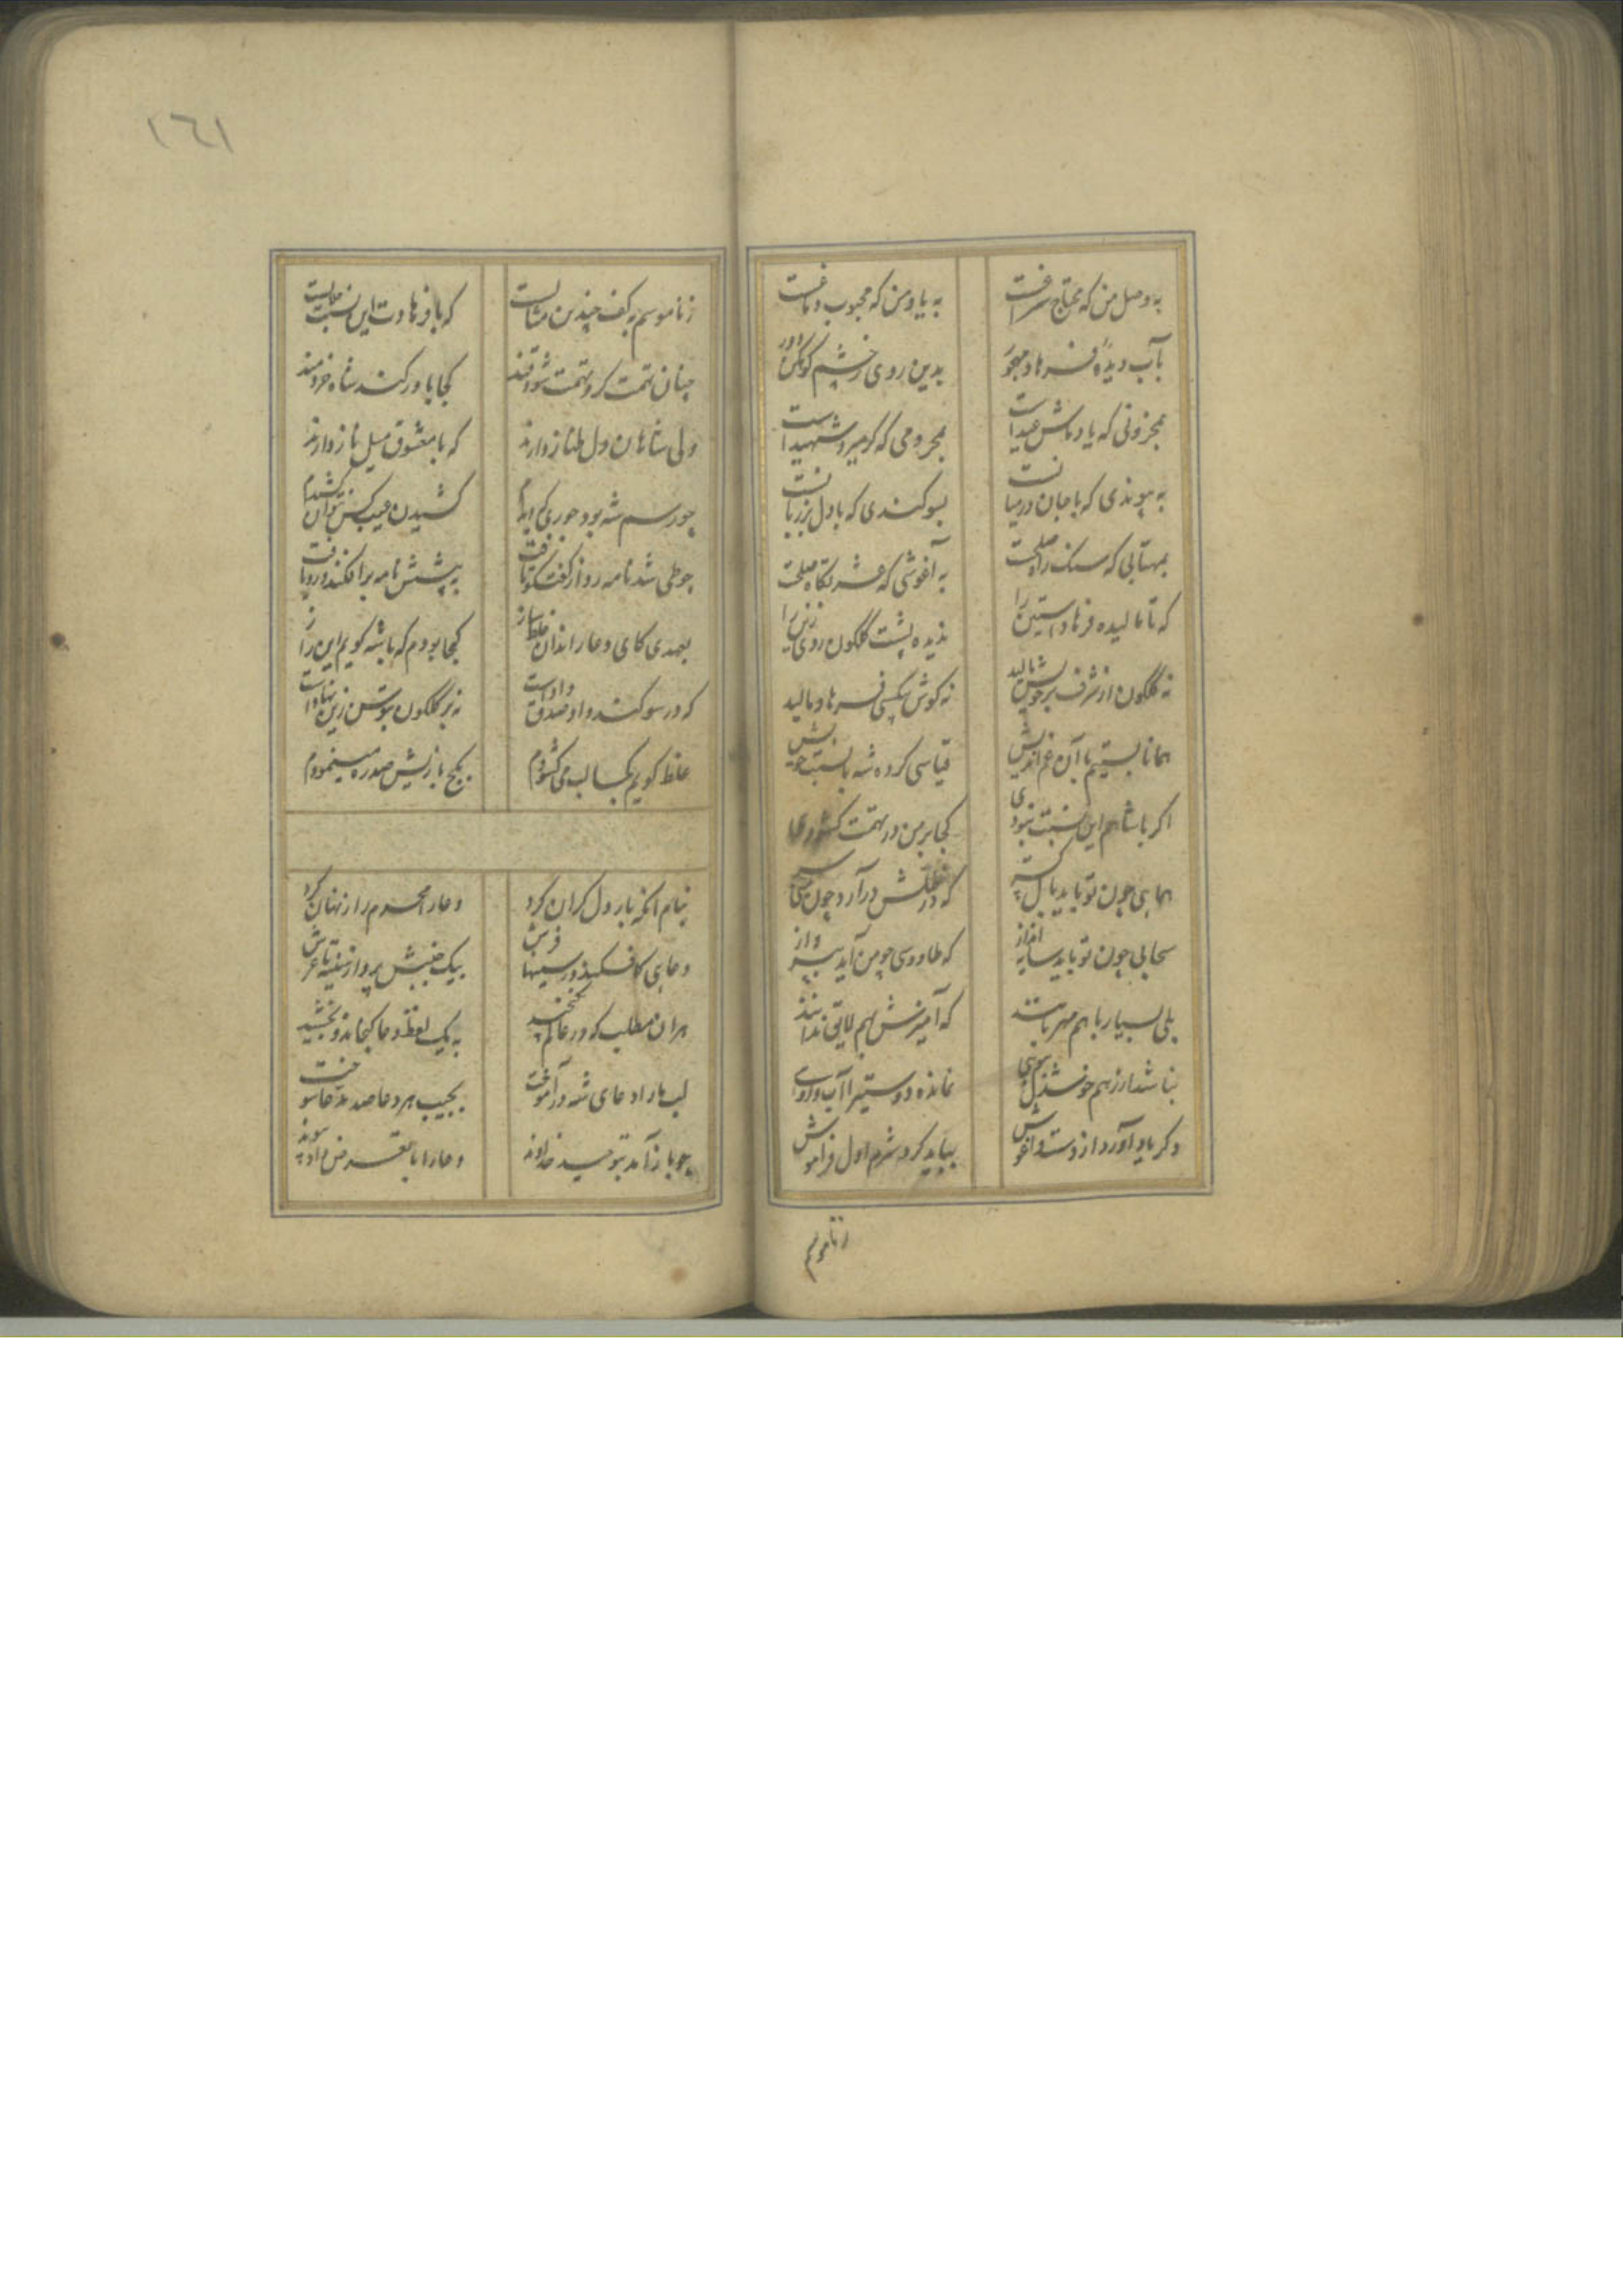 به وصل من که محتاج سرافست
به یاد من که محبوب دماغست
بآب دیده فرهاد مهجور
بدین روی ز خشم کوهکن دور
بمحزونی که یادماش عیداست
بمحرومی که گر میرد شهیداست
به پیوندی که با جان در میانست
بسوکندی که با دل بر زبانست
بمهتابی که سنک راه وصلست
به آغوشی که عشرتگاه وصلست
که تا مالیده فرهاد آستین را
ندیده پشت گلگون روی زین را
نه گلگون از شرف بر خویش بالید
نه کوش بیکسی فرهاد مالید
همانا بستیم با آن غم اندیش
قیاسی کرده شه با نسبت خویش
اکر با شاهم این نسبت نبودی
کجا بر من در تهمت کشودی
همایی چون تو باید بال بسته
که طاووسی چو من آید بپرواز
سحابی چون تو باید سایه انداز
بلی بسیار با هم مهربانند
که آمیزش بهم لایق ندانند
نمانده دوستیرا آب و روی
دکر یاد آورد از دست و آغوش
بباید کرد شرم اول فراموش
زناموسم
١٦١
زناموسم به کف چندین مثالست
که با فرهادت این نسبت محالست
چنان تهمت کر و تهمت شنو اقتد
کجا باور کند شاه خردمند
ولی شاهان دل طناز دارند
که با معشوق میل ناز دارند
چو رسم شه بود جوری که دیدم
کشیدن جیب کس نتوان کشیدم
چو طی شد نامه رو از گفت‌گو تافت
به پیشش نامه بر افکند و رو یافت
بعهدی کای دعار اندان غلط ساز
کجا بودم که با شه کویم این راز
که در سوکند داد صدق دادست
نه بر گلگون بتوسن زین نهادست
غلط کویم کجا لب می کشودم
بکج بازیش صد ره مینمودم
بنام آنکه بار دل کران کرد
دعا را محرم راز نهان کرد
دعایی کافکند در سینها فرش
بیک جنبش بپرواز سینه تا عرش
هر ان مطلب که در عالم نکنجد
به یک لفظ دعا کنجاند و بخشید
لب ما را دعای شه در آموخت
بجیب هر دعا صد مدعا دوخت
چو باز آمد بتوحید خداوند
دعا را با غرض داد پیوند